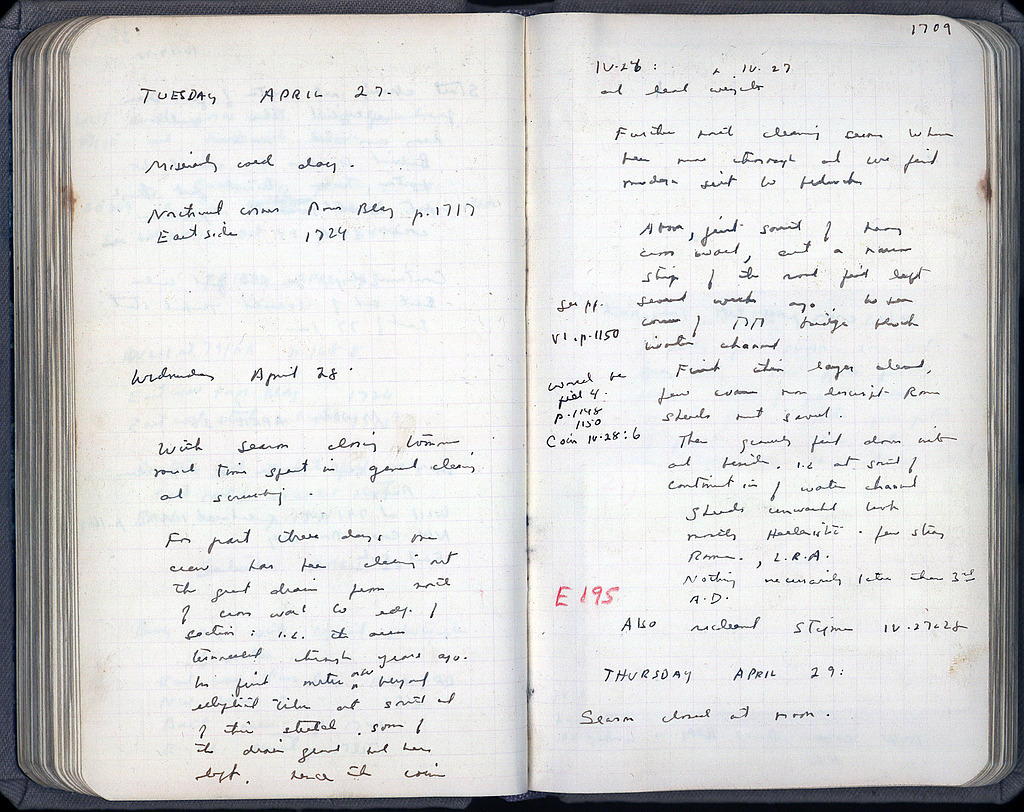 TUESDAY APRIL 27.
Miserably cold day.
Northwest corner Room Beta p. 1717
East side 1724
Wednesday April 28.
With season closing tomorrow
most time spent in general cleaning
and scrubbing.
For past three days, one
crew has been cleaning out
the great drain from south
of cross wall to edge of
section: i.e. the area
tunneled through years ago.
We find
elliptical tiles at south end
of this stretch. Some of
the drain had been
left. Hence the coin
1709
IV.28: & IV.27
and lead weight
Further south cleaning seems to have
been more thorough and we find
modern silt to bedrock
Above, just south of heavy
cross wall, cut a narrow
strip of the road just left
several weeks ago. We see
corner of bridge block
water channel
See pp.
VI. p. 1150
First thin layer cleaned,
few coarse non descript Roman
sherds not saved.
would be
p. 1148
1150
Coin IV.28:6
Then gravelly fill down into
and beside, i.e. at south of
continuation of water channel
Sherds
mostly Hellenistic - few stray
Roman, L.R.A.
Nothing necessarily later than 3rd
A.D.
E 195
Also IV.27 & 28
THURSDAY APRIL 29:
Season closed at noon.